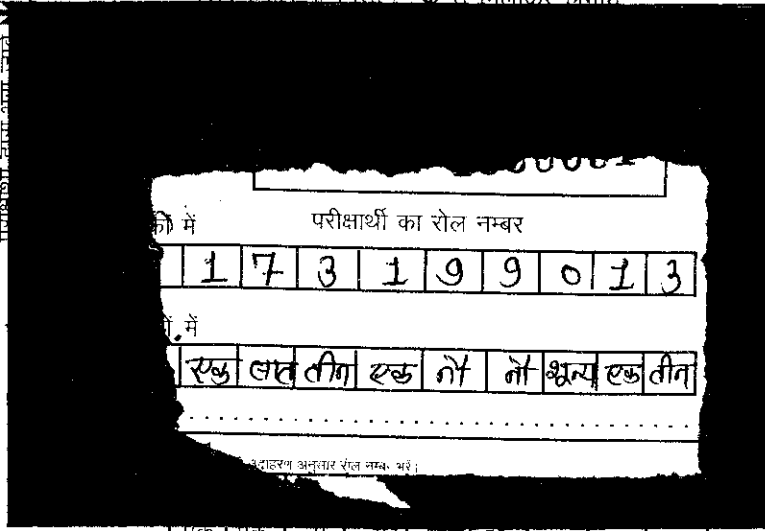 में परीक्षार्थी का रोल नम्बर
1 7 3 1 9 9 0 1 3
में
एक सात तीन एक नौ नौ शून्य एक तीन
उदाहरण अनुसार रोल नम्बर भरें।